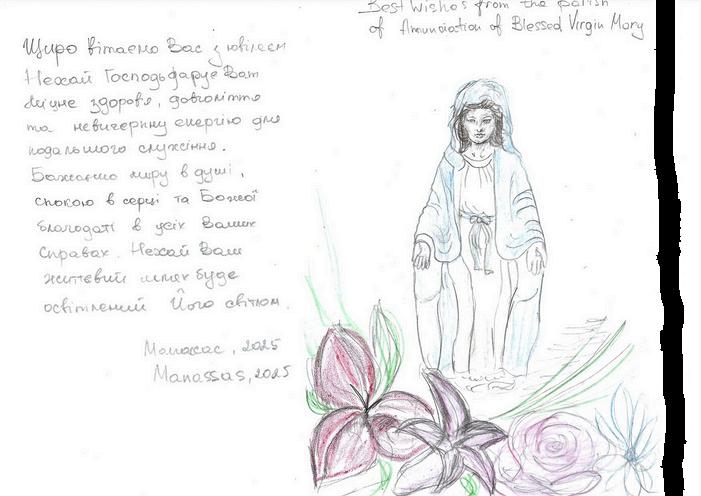 Щиро вітаємо Вас з ювілеєм
Нехай Господь дарує Вам
міцне здоров'я, довголіття
та невичерпну енергію для
подальшого служіння.
Бажаємо миру в душі,
спокою в серці та Божої
благодаті в усіх Ваших
справах. Нехай Ваш
життєвий шлях буде
освітлений Його світлом.
Манасас, 2025
Manassas, 2025
Best Wishes from the parish
of Annunciation of Blessed Virgin Mary